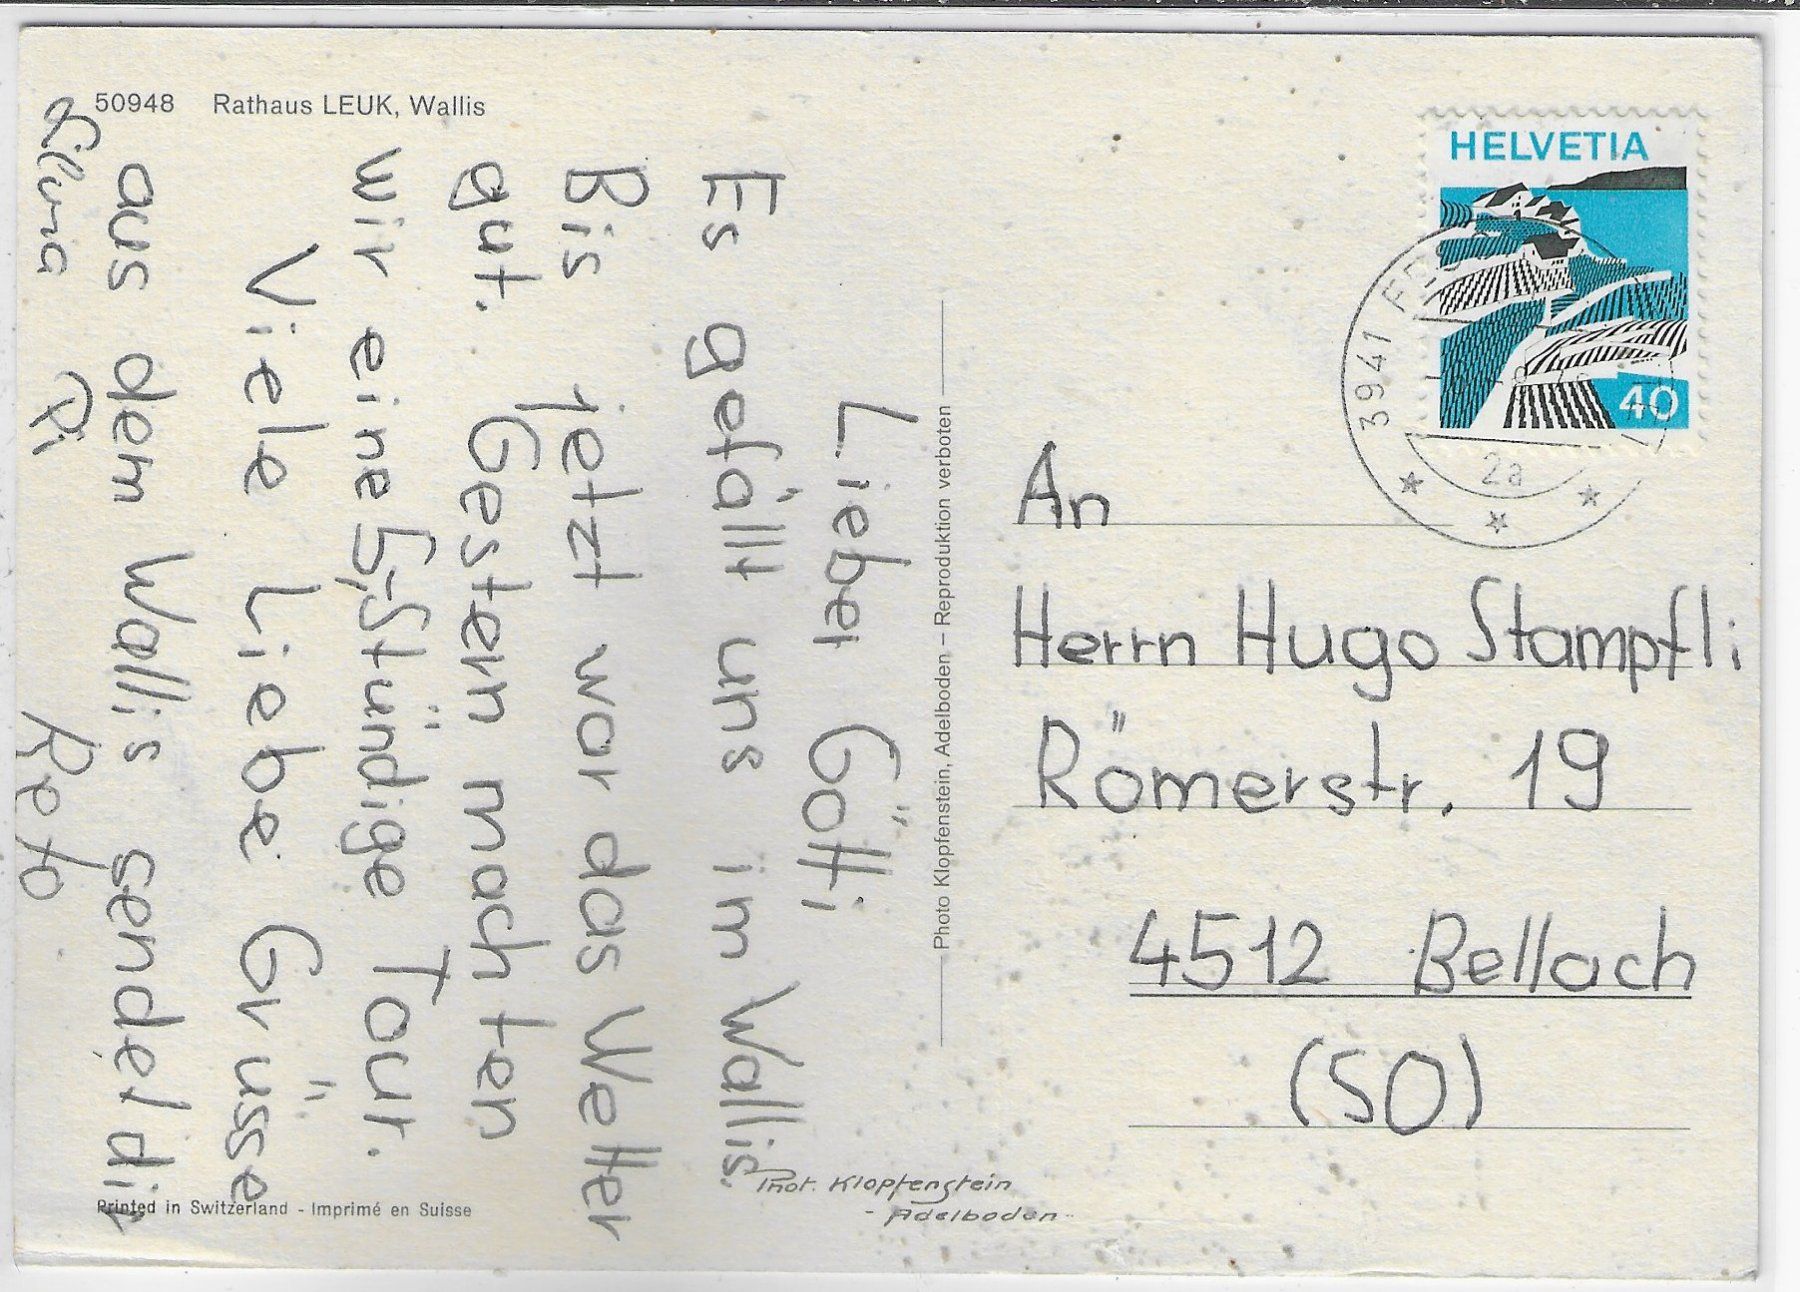 50948 Rathaus LEUK, Wallis
Lieber Götti
Es gefällt uns im Wallis.
Bis jetzt war das Wetter
gut. Gestern machten
wir eine 5,-Stündige Tour.
Viele Liebe Grüsse
aus dem Wallis sendet dir
Reto
Photo Klopfenstein, Adelboden – Reproduktion verboten
Printed in Switzerland - Imprimé en Suisse
Phot. Klopfenstein
- Adelboden
HELVETIA
40
3941
2a
An
Herrn Hugo Stampfli
Römerstr. 19
4512 Bellach
(SO)